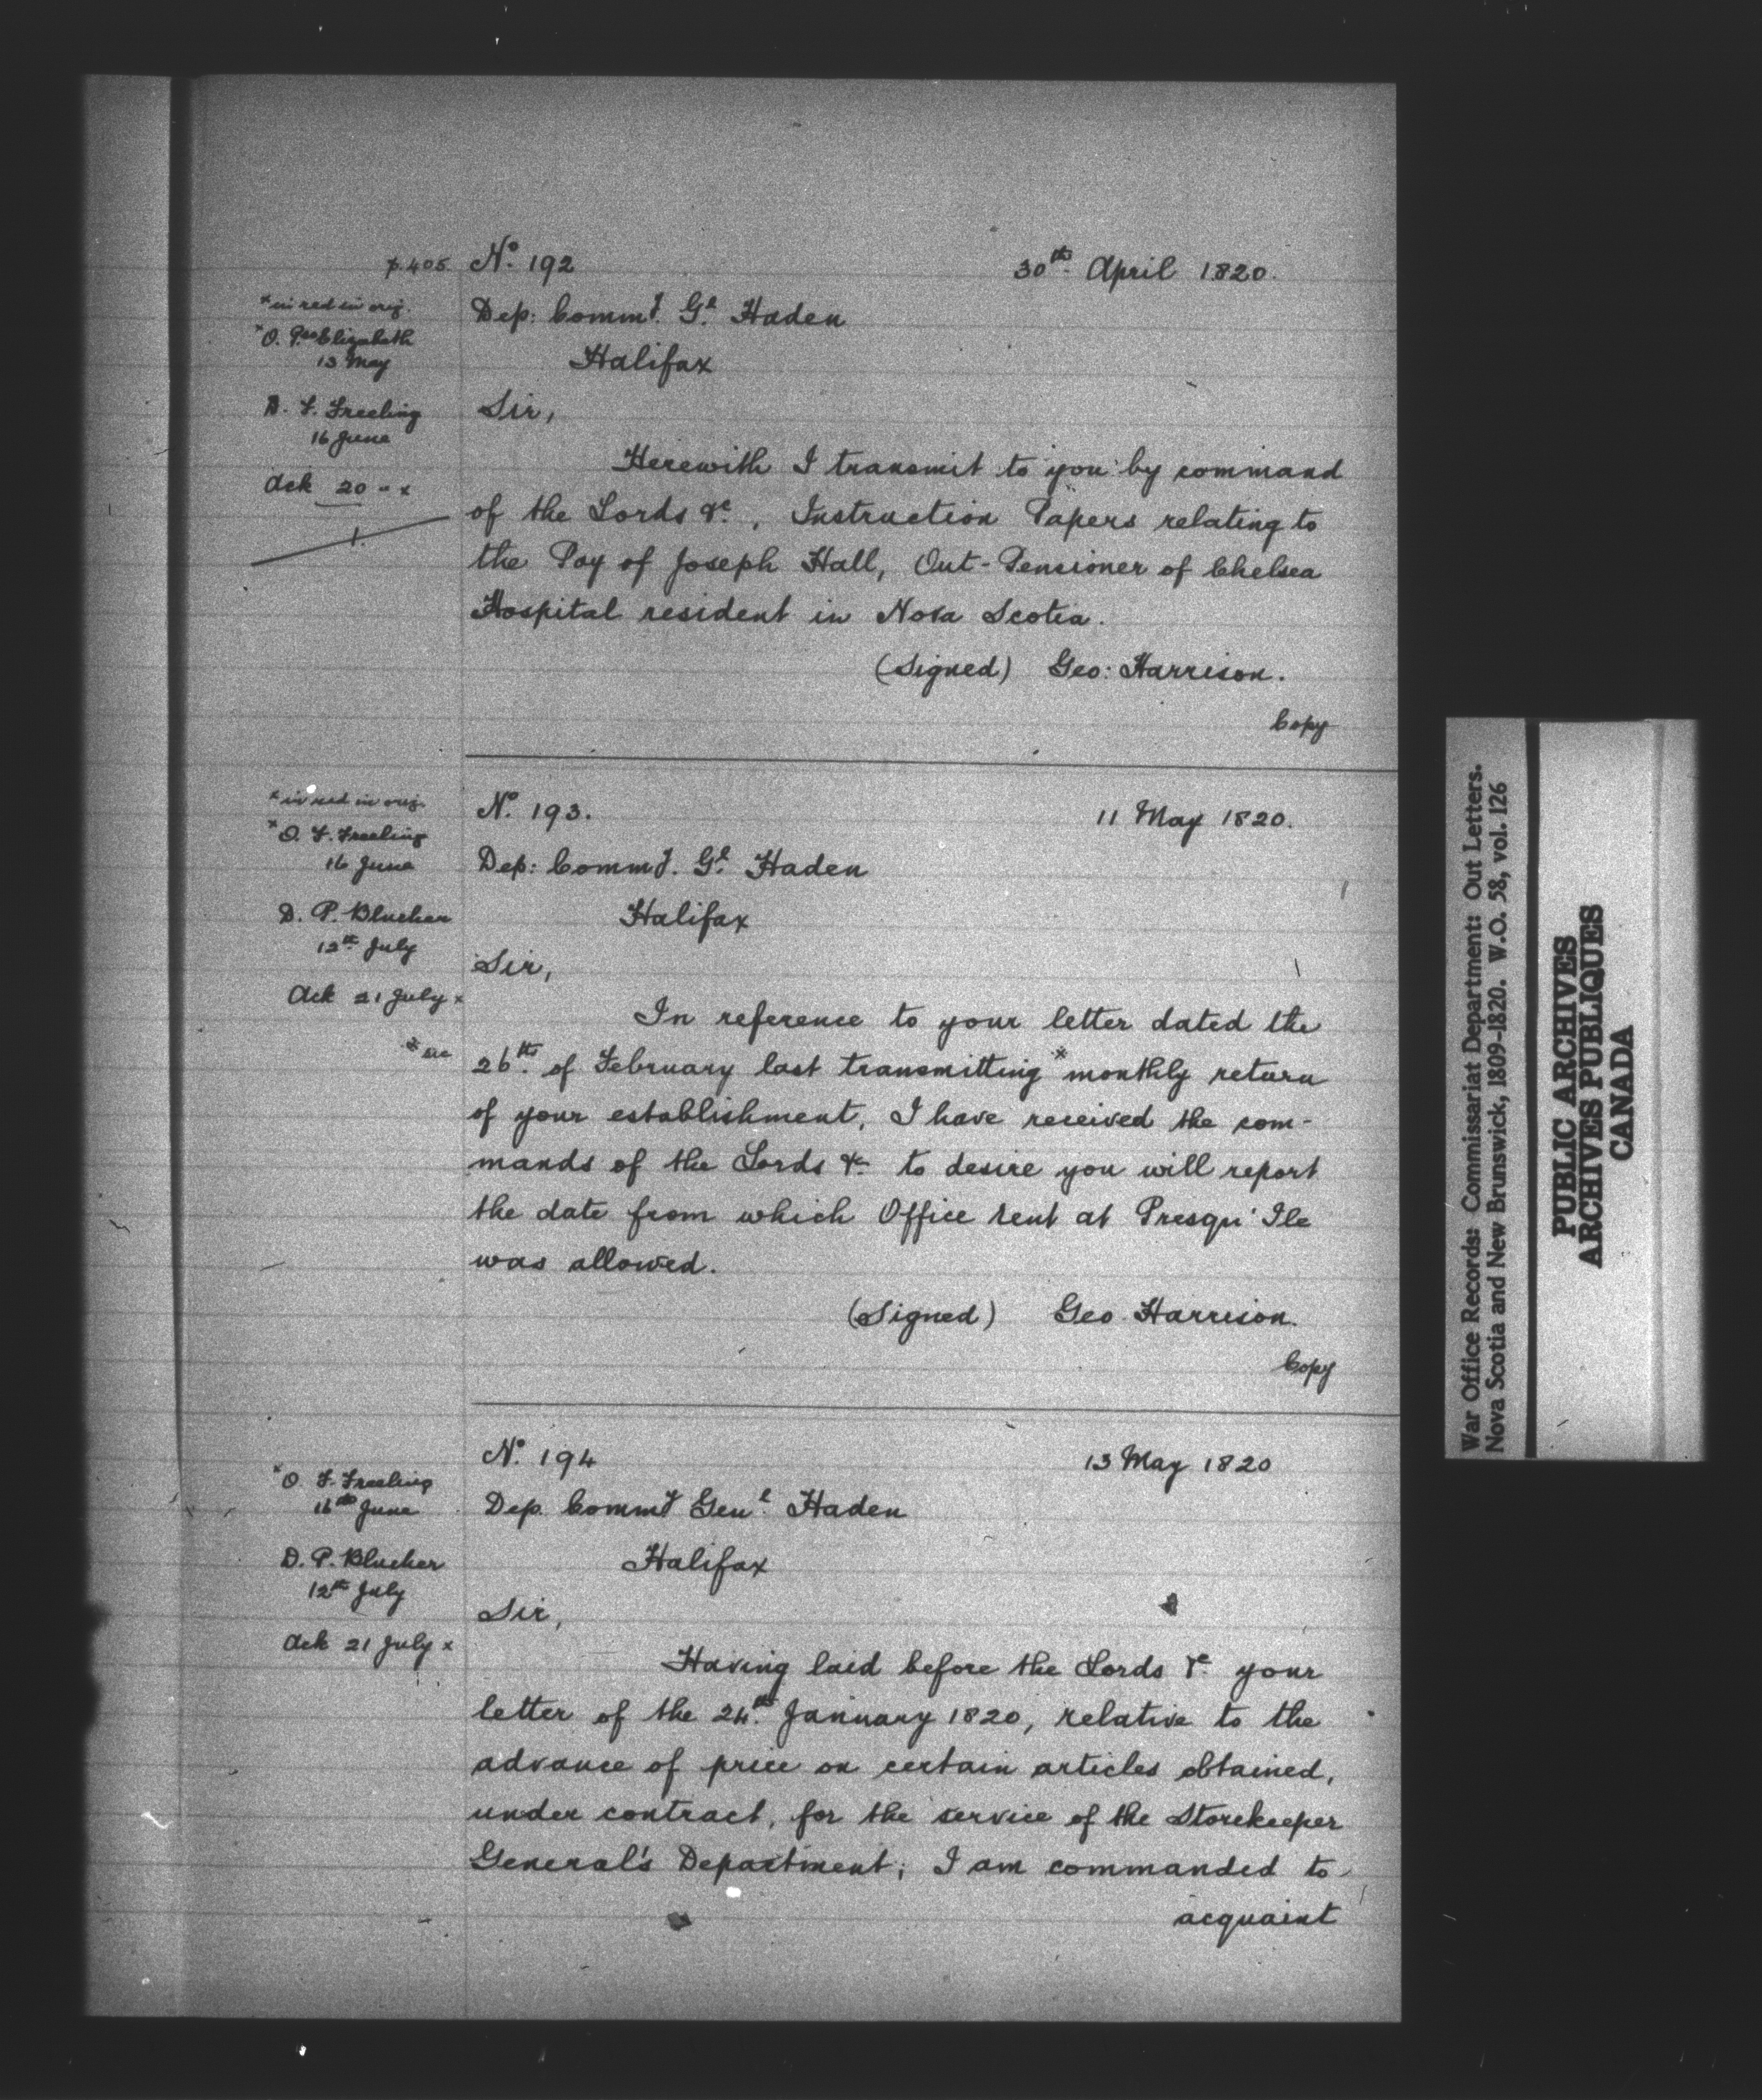 p. 405 No. 192 30th April 1820.
* in red in orig.
Dep: Commy. Gl. Haden
* O. Pss Elizabeth
13 May
Halifax
D. F. Freeling
16 June
Sir,
Herewith I transmit to you by command
Ack 20 " x
of the Lords &c., Instruction Papers relating to
1.
the Pay of Joseph Hall, Out-Pensioner of Chelsea
Hospital resident in Nova Scotia.
(Signed) Geo: Harrison.
Copy
* in red in orig.
No. 193. 11 May 1820.
* O. F. Freeling
16 June
Dep: Commy. Gl. Haden
D. P. Blucher
12th July
Halifax
Sir,
Ack 21 July x
In reference to your letter dated the
* sic
26th. of February last transmitting * monthly return
of your establishment, I have received the com-
mands of the Lords &c to desire you will report
the date from which Office rent at Presqu' Ile
was allowed.
(Signed) Geo Harrison.
Copy
No. 194 13 May 1820
* O F. Freeling
16th June
Dep. Commy Genl. Haden
D. P. Blucher
12th July
Halifax
Sir,
Ack 21 July x
Having laid before the Lords &c. your
letter of the 24th. January 1820, relative to the
advance of price on certain articles obtained,
under contract, for the service of the Storekeeper
General's Department; I am commanded to
acquaint
War Office Records: Commissariat Department: Out Letters.
Nova Scotia and New Brunswick, 1809-1820. W.O. 58, vol. 126
PUBLIC ARCHIVES
ARCHIVES PUBLIQUES
CANADA